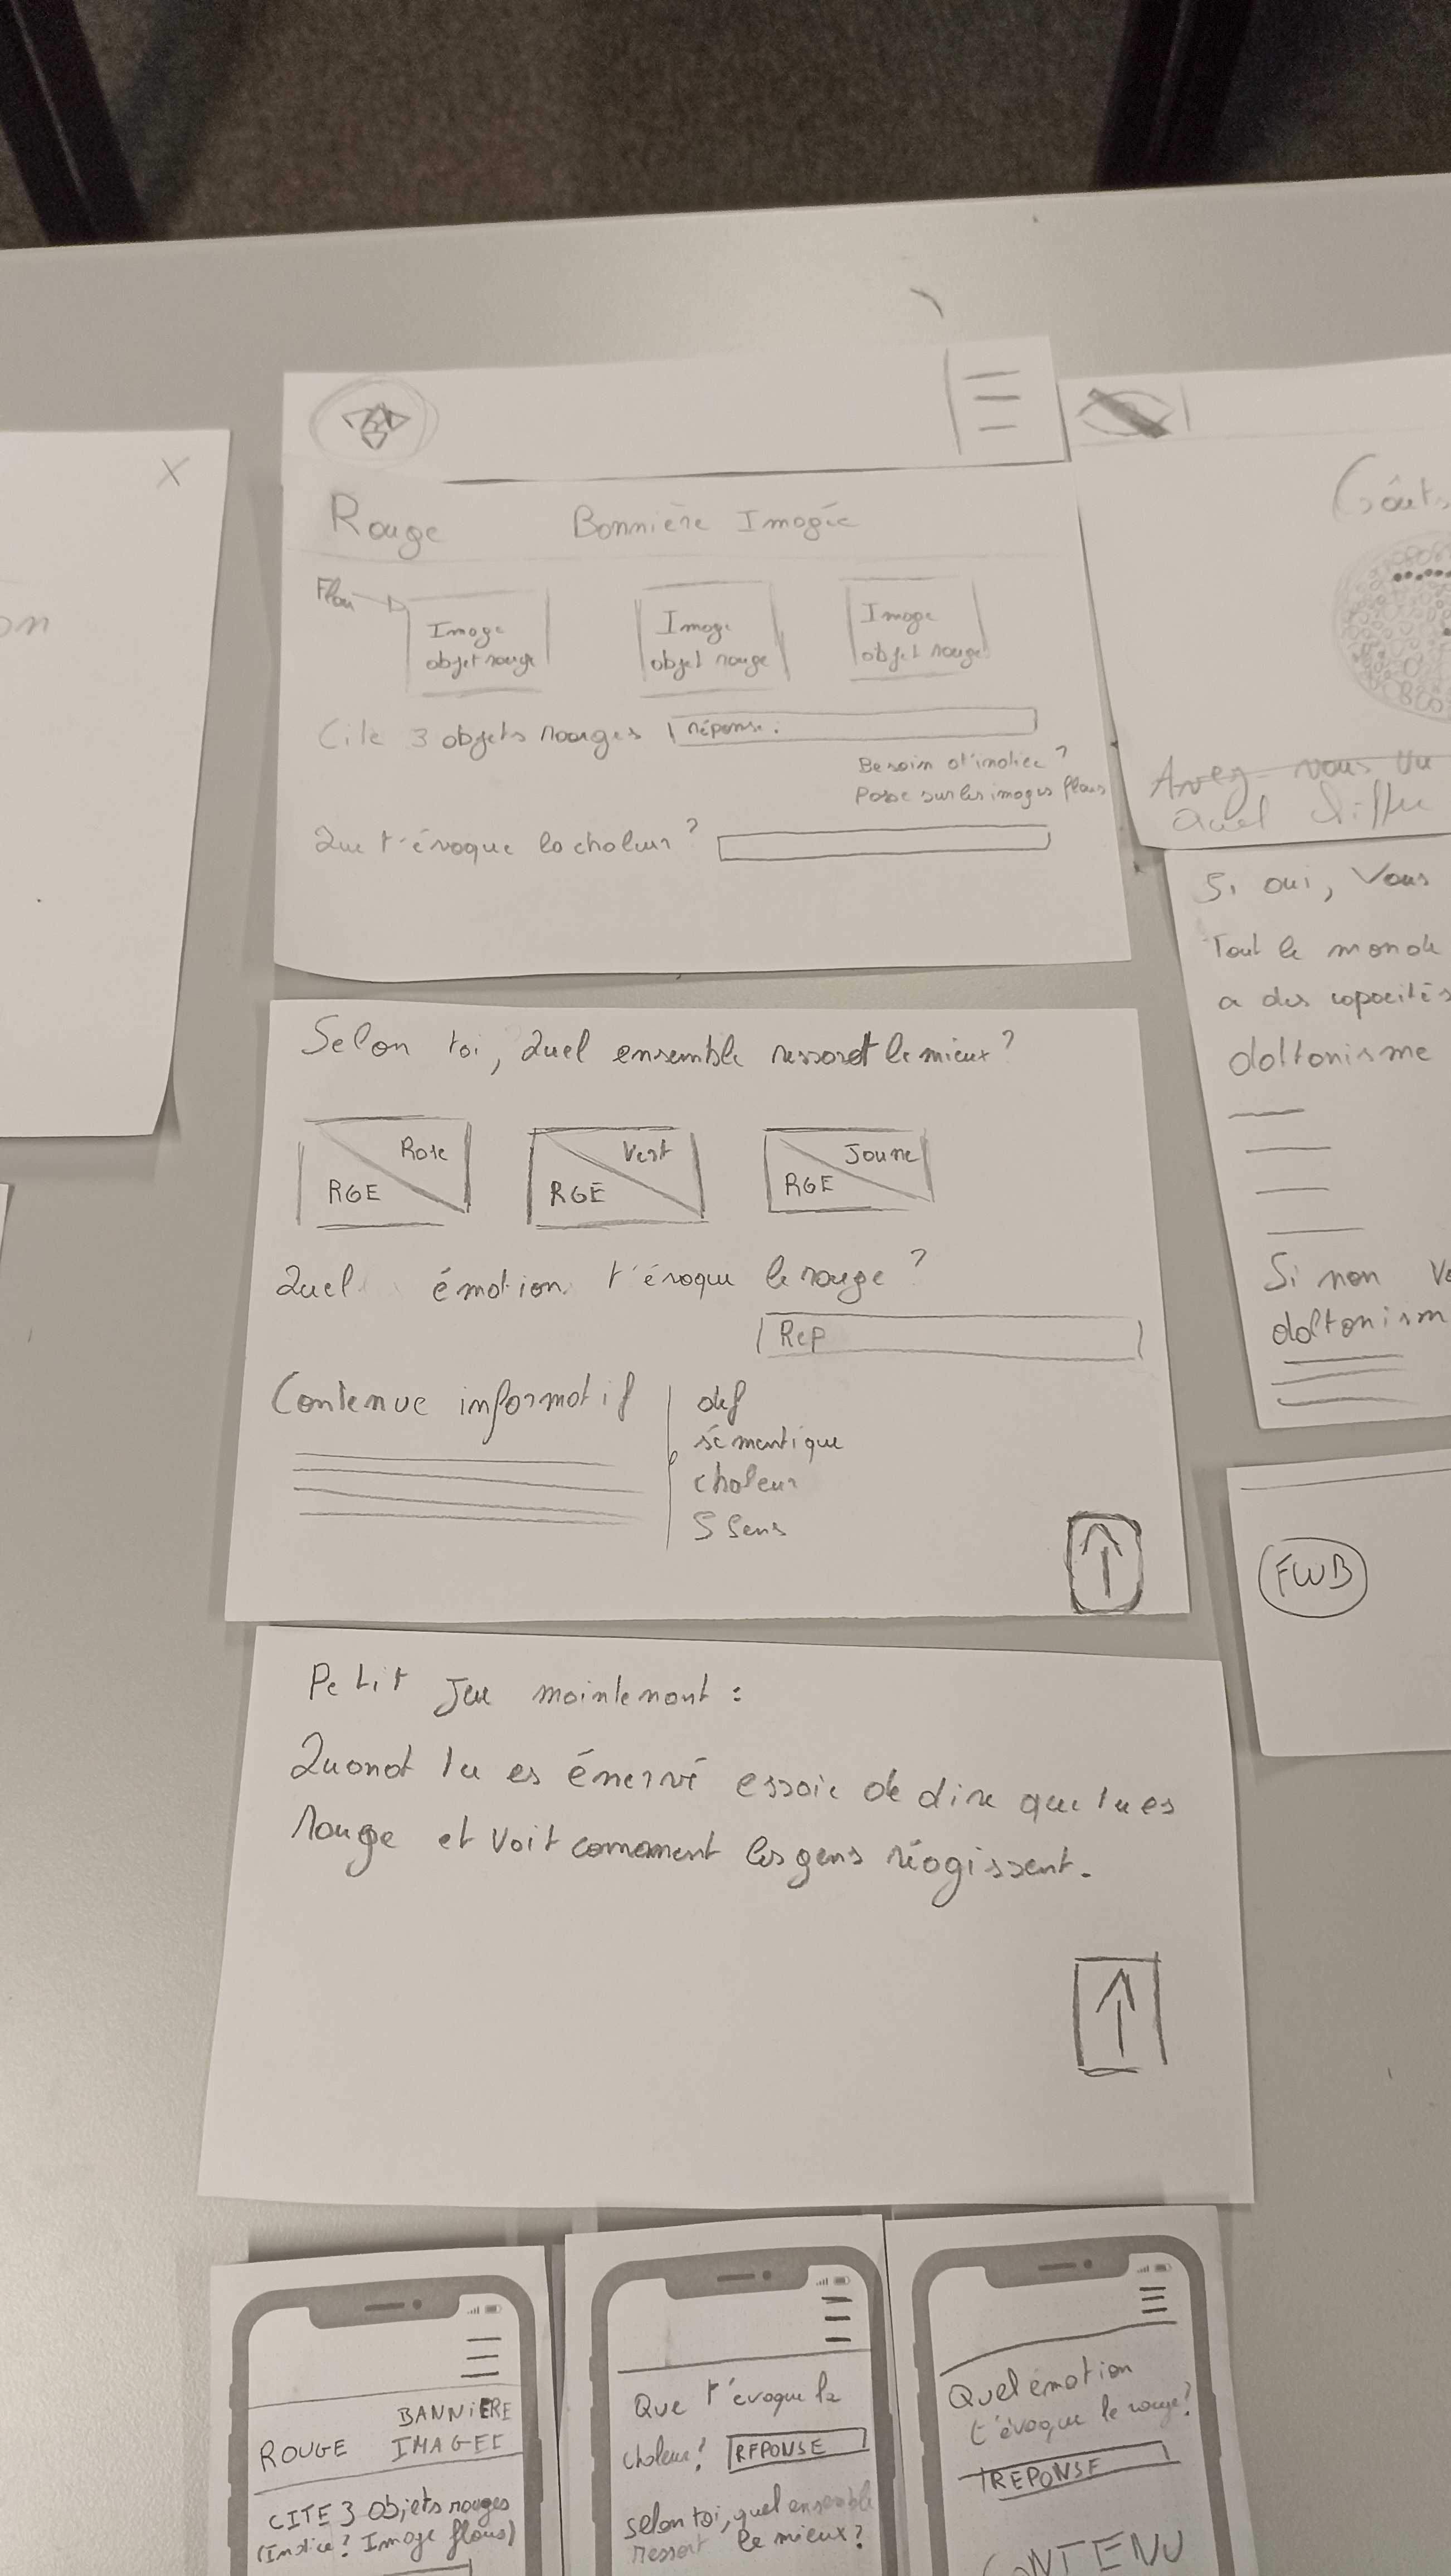 X
on
Rouge Bannière Imagée
Flou
Image
objet rouge
Image
objet rouge
Image
objet rouge
Cite 3 objets rouges réponse.
Besoin d'indice ?
Passe sur les images flous
Que t'évoque la chaleur ?
Selon toi, Quel ensemble ressoret le mieux ?
Rose
RGE
Vert
RGE
Jaune
RGE
Quel émotion t'évoque le rouge ?
Rep
Contenue informatif
def
sémantique
chaleur
5 Sens
Petit Jeu maintenant :
Quand tu es énervé essaie de dire que tu es
rouge et voit comment les gens réagissent.
Avez-vous vu
quel chiffre
Si oui, Vous
Tout le monde
a des capacités
daltonisme
Si non Vo
daltonism
FWB
ROUGE
BANNIERE
IMAGEE
CITE 3 Objets rouges
(Indice? Image flous)
Que t'évoque la
chaleur? REPONSE
selon toi, quel ensemble
ressort le mieux?
Quel émotion
t'évoque le rouge?
REPONSE
CONTENU